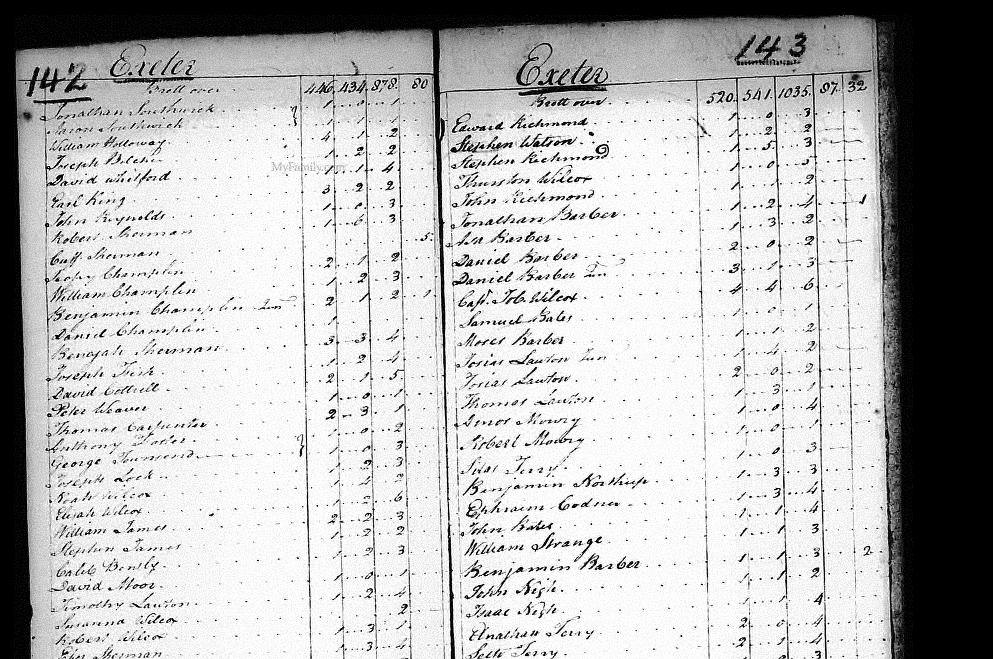 142
Exeter
Brott over 446 434 878 80
Jonathan Southwick
Aaron Southwick 1 0 1
William Holloway 1 1 1
Joseph 4 1 2
David Whitford 1 2 2
Earl King 1 4
John Reynolds 3 2 2
Robert Sherman 1 0 3
Cuff Sherman 1 6 3
Champlin 5
William Champlin 2 1 2
Benjamin Champlin Junr 1 2 3
Daniel Champlin 2 1 2 1
Benejah Sherman 1
Joseph 3 3 4
David Cottrell 1 2 4
Peter Weaver 2 1 5
Thomas Carpenter 1 0 1
Anthony 2 3 1
George Townsend 1 0 2
Joseph Lock 1 0 3
Noah Wilcox 1 2 3
Elijah Wilcox 1 2
William James 1 2 6
Stephen James 2 2 3
Caleb 1 2 2
David Moor 1 2 3
Timothy Lawton 1 0 1
Susanna Wilcox 1 2 4
Robert Wilcox 2
Sherman 1 3 1
1 3 4
143
Exeter
Brott over 520 541 1035 87 32
Edward Richmond 1 0 3
Stephen Watson 1 2 2
Stephen Richmond 1 5 3
Thurston Wilcox 1 0 5
John Richmond 1 1 2
Jonathan Barber 1 2 4 1
Asa Barber 1 3 2
Daniel Barber 2 0 2
Daniel Barber Junr 3 1 3
Capt. Job Wilcox 4 4 6
Samuel Bates 1 0 1
Moses Barber 1 1 2
Josias Lawton Junr 1 4 2
Josias Lawton 2 0 2
Thomas Lawton 1 3 1
Amos Mowry 1 0 4
Robert Mowry 1 0 1
Silas Terry 1 0 3
Benjamin Northup 1 3 3
Ephraim Codner 1 3 4
John Bates 1 1 4
William Strange 1 1 3
Benjamin Barber 1 1 3 2
John Nigh 1 1 2
Isaac Nigh 1 1 4
Elnathan Terry 2 0 4
Seth Terry 2 1 4
MyFamily.com